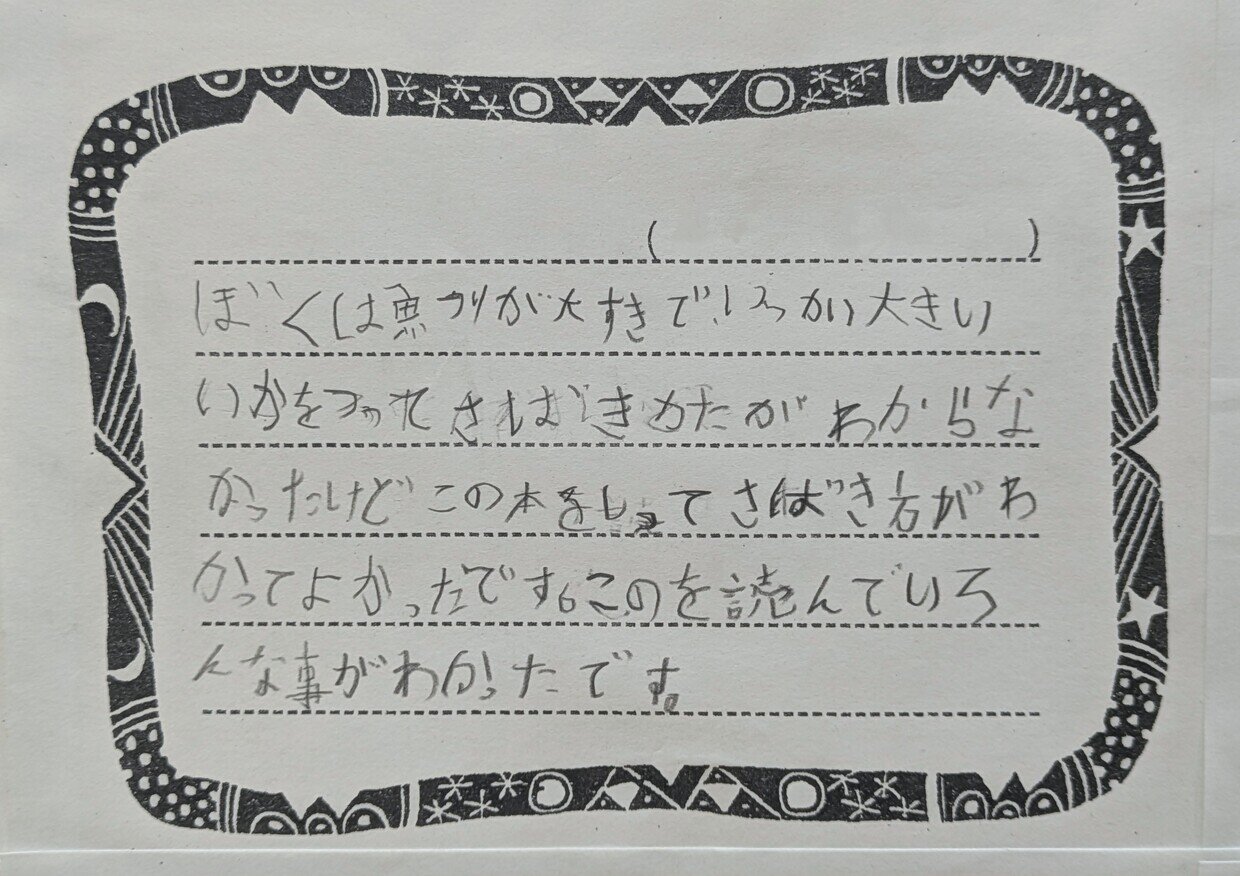 (　　　　)
ぼくは魚つりが大すきで、いっかい大きい
いかをつってさばきかたがわからな
かったけどこの本をしってさばき方がわ
かってよかったです。このを読んでいろ
んな事がわかったです。